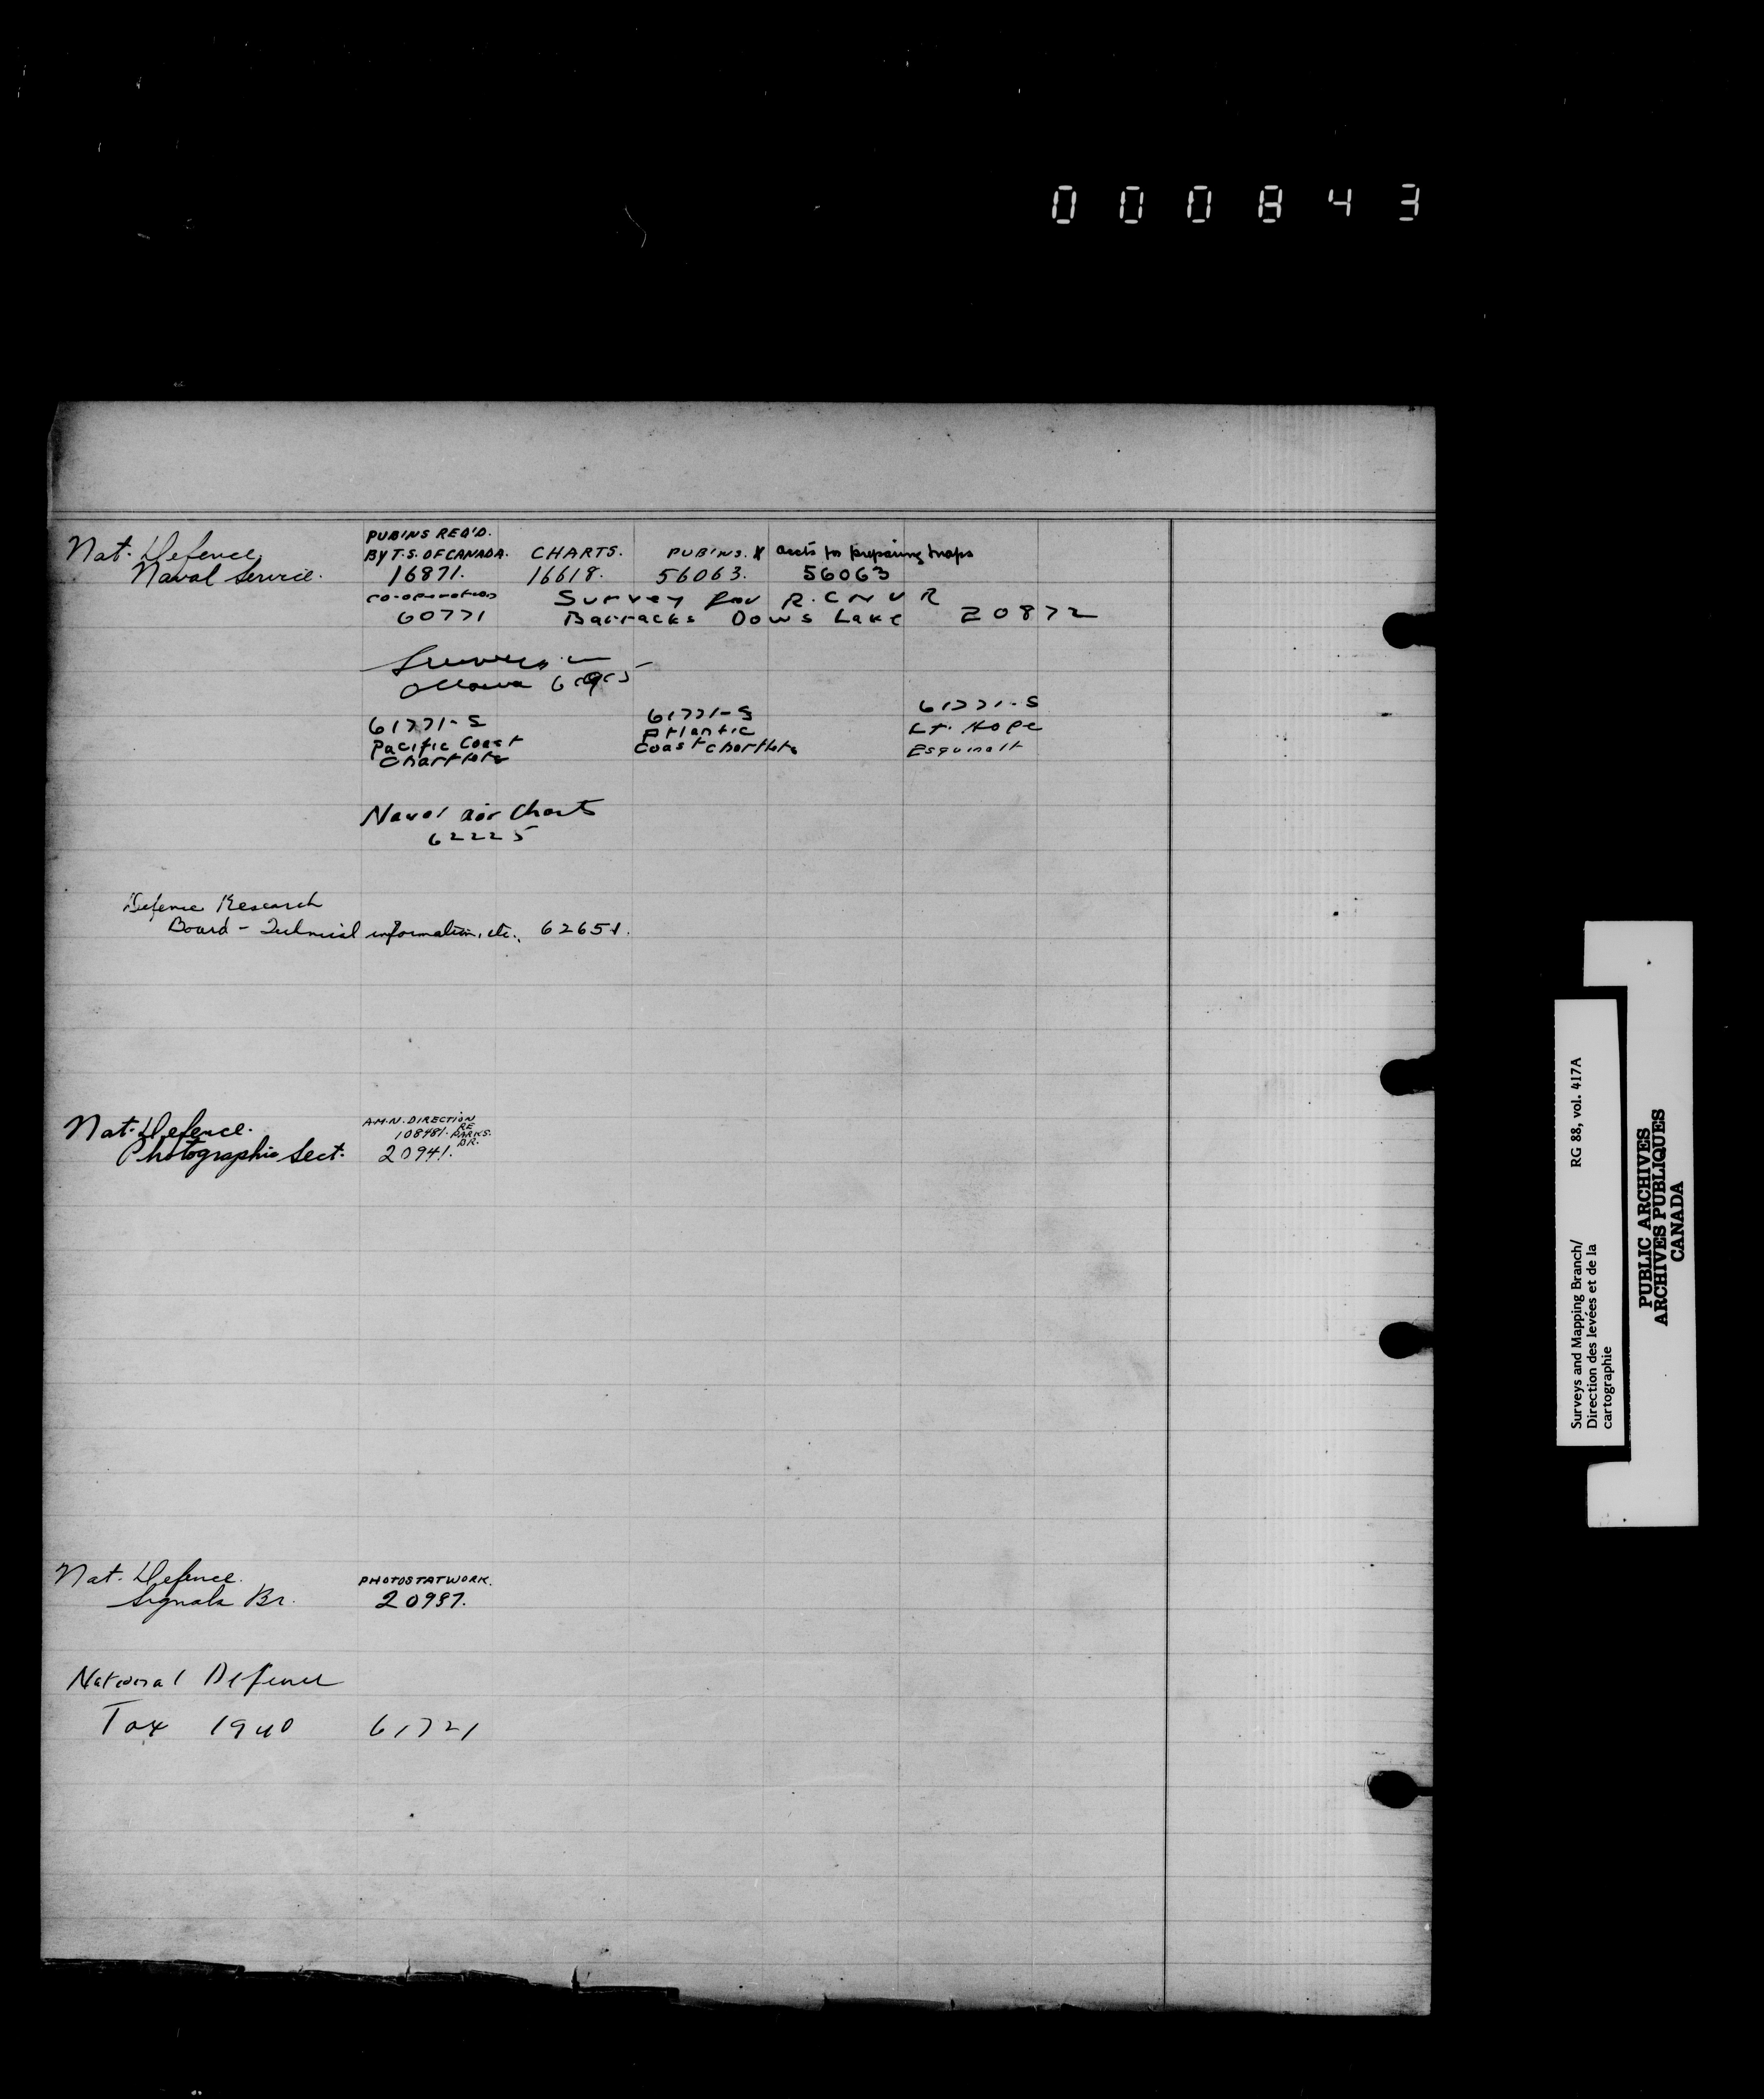 000843
Nat. Defence
Naval Service.
PUB'NS REQ'D.
BY T.S. OF CANADA.
16871.
CHARTS.
16618.
PUB'NS. & accts for preparing maps
56063. 56063
co-operation
60771
Survey for R.C.N.V.R
Barracks Dows Lake 20872
Surveys in
Ottawa
61771-S
Pacific Coast
Chart lots
61771-S
Atlantic
Coast chart lots
61771-S
Lt. Hope
Esquimalt
Naval air Charts
62225
Defence Research
Board - Technical information, etc., 62651.
Nat. Defence.
Photographic Sect.
A.M.N. DIRECTION
108481. RE
PARKS.
DR.
20941.
Nat. Defence.
Signals Br.
PHOTOSTAT WORK.
20987.
National Defence
Tax 1940 61721
Surveys and Mapping Branch/
Direction des levées et de la
cartographie
RG 88, vol. 417A
PUBLIC ARCHIVES
ARCHIVES PUBLIQUES
CANADA